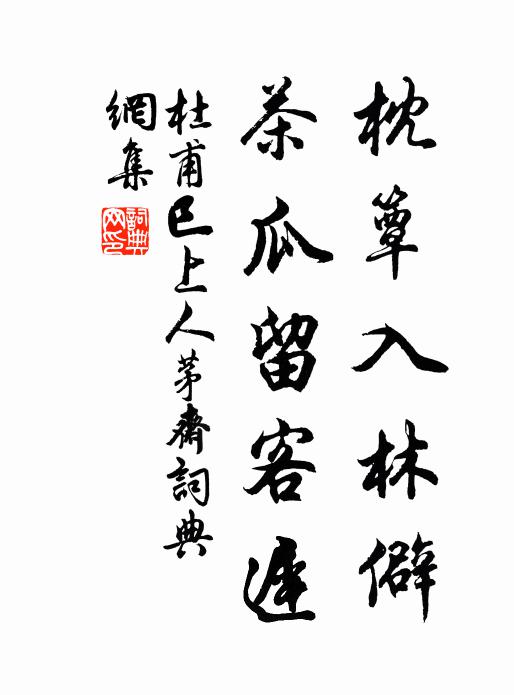 枕簟入林僻
茶瓜留客遲
杜甫巳上人茅齋詞典
網集
詞典網印